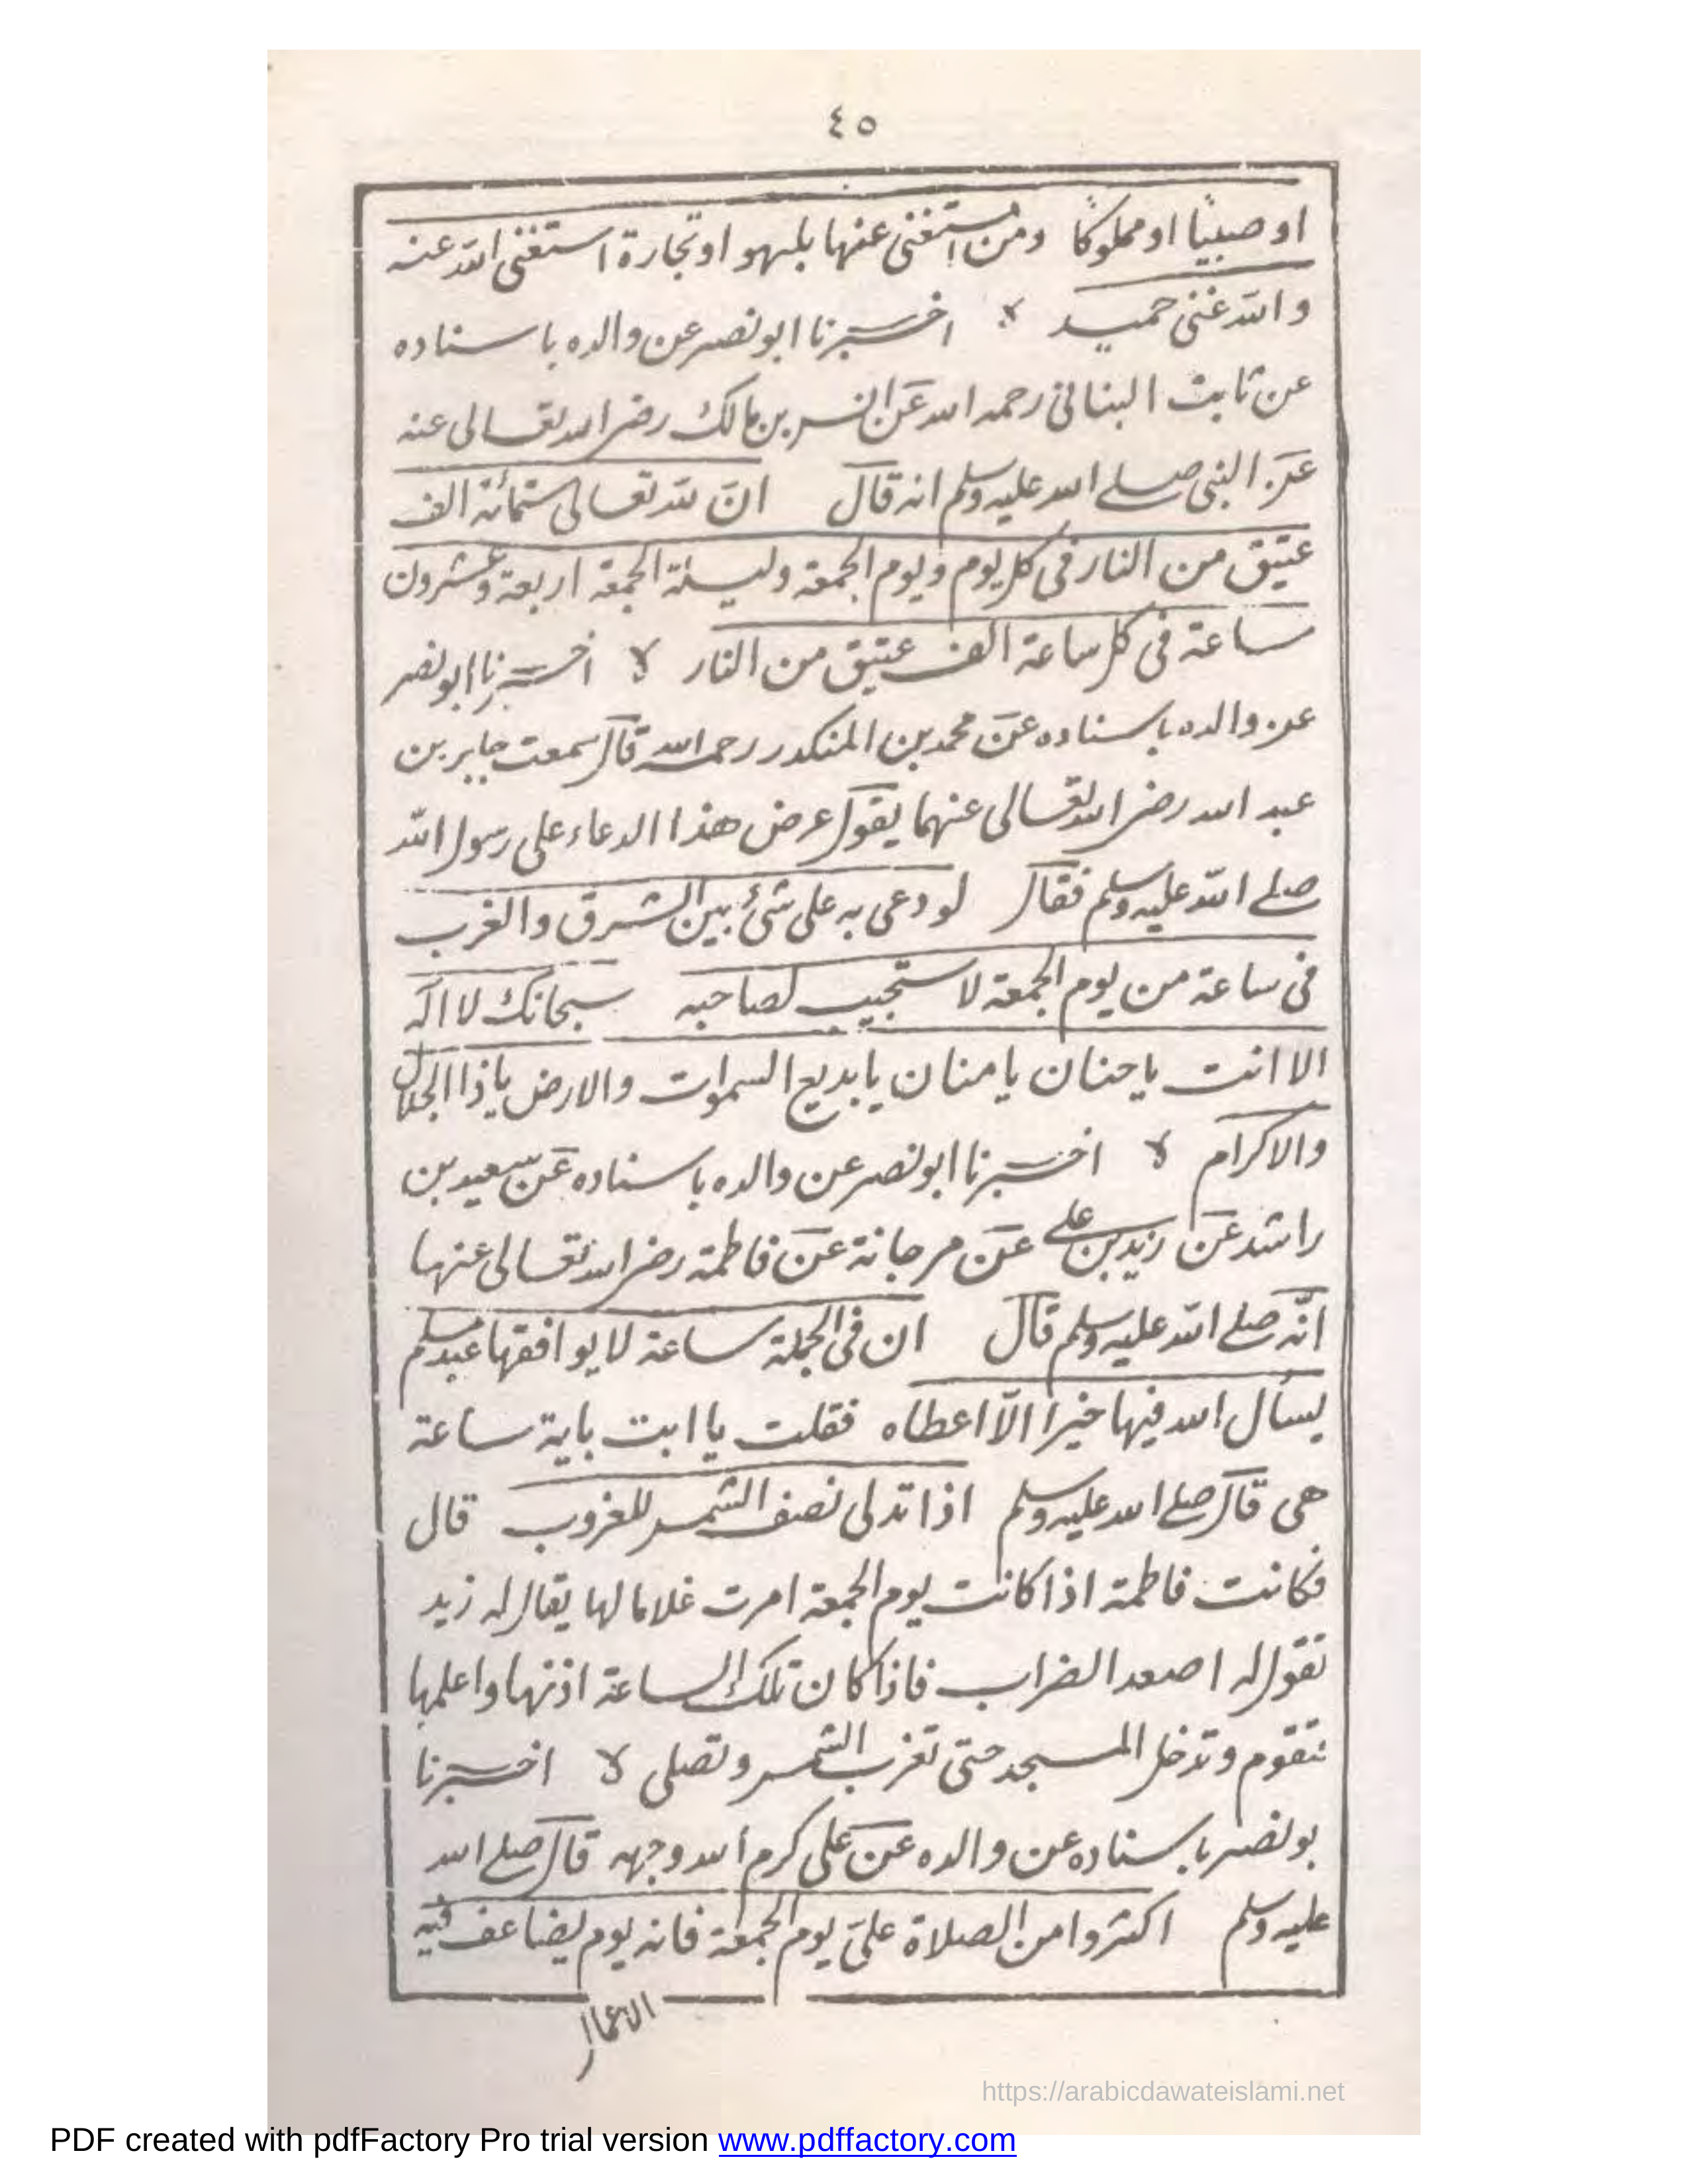 ٤٥
او صبيًا او مملوكًا ومن استغنى عنها بلهو او تجارة استغنى الله عنه
والله غنى حميد لا اخبرنا ابو نصر عن والده باسناده
عن ثابت البنانى رحمه الله عن انس بن مالك رضى الله تعالى عنه
عن النبى صلى الله عليه وسلم انه قال ان لله تعالى ستمائة الف
عتيق من النار فى كل يوم ويوم الجمعة وليلة الجمعة اربعة وعشرون
ساعة فى كل ساعة الف عتيق من النار لا اخبرنا ابو نصر
عن والده باسناده عن محمد بن المنكدر رحمه الله قال سمعت جابر بن
عبد الله رضى الله تعالى عنهما يقول عرض هذا الدعاء على رسول الله
صلى الله عليه وسلم فقال لو دعى به على شئ بين الشرق والغرب
فى ساعة من يوم الجمعة لاستجيب لصاحبه سبحانك لا اله
الا انت يا حنان يا منان يا بديع السموات والارض يا ذا الجلال
والاكرام لا اخبرنا ابو نصر عن والده باسناده عن سعيد بن
راشد عن زيد بن على عن مرجانة عن فاطمة رضى الله تعالى عنها
انّه صلى الله عليه وسلم قال ان فى الجملة ساعة لا يوافقها عبد مسلم
يسأل الله فيها خيرا الّا اعطاه فقلت يا ابت باية ساعة
هى قال صلى الله عليه وسلم اذا تدلى نصف الشمس للغروب قال
فكانت فاطمة اذا كانت يوم الجمعة امرت غلاما لها يقال له زيد
تقول له اصعد الضراب فاذا كان تلك الساعة اذنها واعلمها
فتقوم وتدخل المسجد حتى تغرب الشمس وتصلى لا اخبرنا
بو نصر باسناده عن والده عن على كرم الله وجهه قال صلى الله
عليه وسلم اكثروا من الصلاة علىّ يوم الجمعة فانه يوم يضاعف فيه
الاعمال
https://arabicdawateislami.net
PDF created with pdfFactory Pro trial version www.pdffactory.com